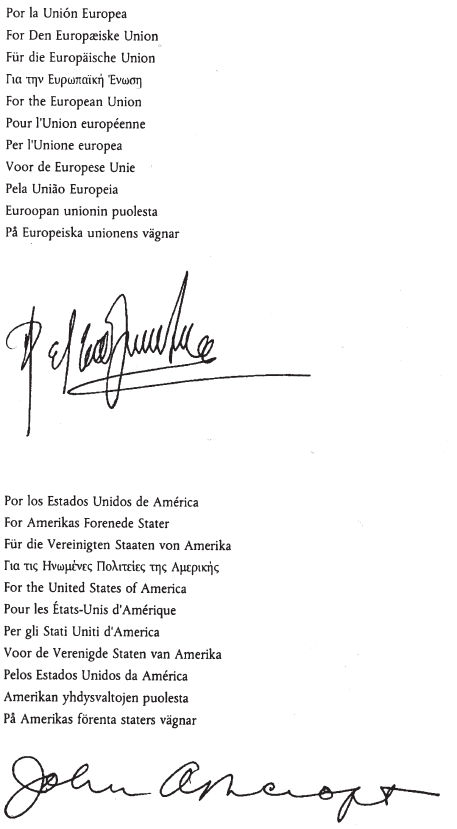 Por la Unión Europea
For Den Europæiske Union
Für die Europäische Union
Για την Ευρωπαϊκή Ένωση
For the European Union
Pour l'Union européenne
Per l'Unione europea
Voor de Europese Unie
Pela União Europeia
Euroopan unionin puolesta
På Europeiska unionens vägnar
Por los Estados Unidos de América
For Amerikas Forenede Stater
Für die Vereinigten Staaten von Amerika
Για τις Ηνωμένες Πολιτείες της Αμερικής
For the United States of America
Pour les États-Unis d'Amérique
Per gli Stati Uniti d'America
Voor de Verenigde Staten van Amerika
Pelos Estados Unidos da América
Amerikan yhdysvaltojen puolesta
På Amerikas förenta staters vägnar
John Ashcroft